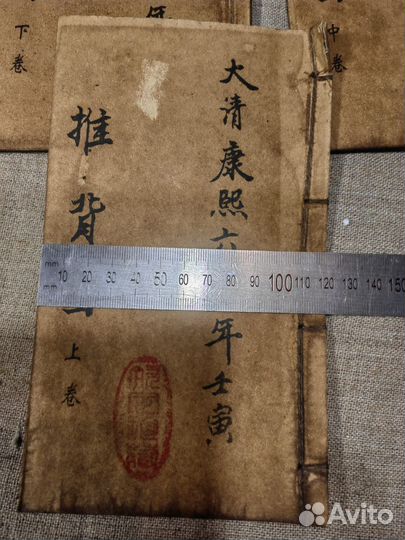 中卷
大清康熙六
年壬寅
推背
上卷
下卷
mm
10 20 30 40 50 60 70 80 90 100 110 120 130 140 150
mm
Avito